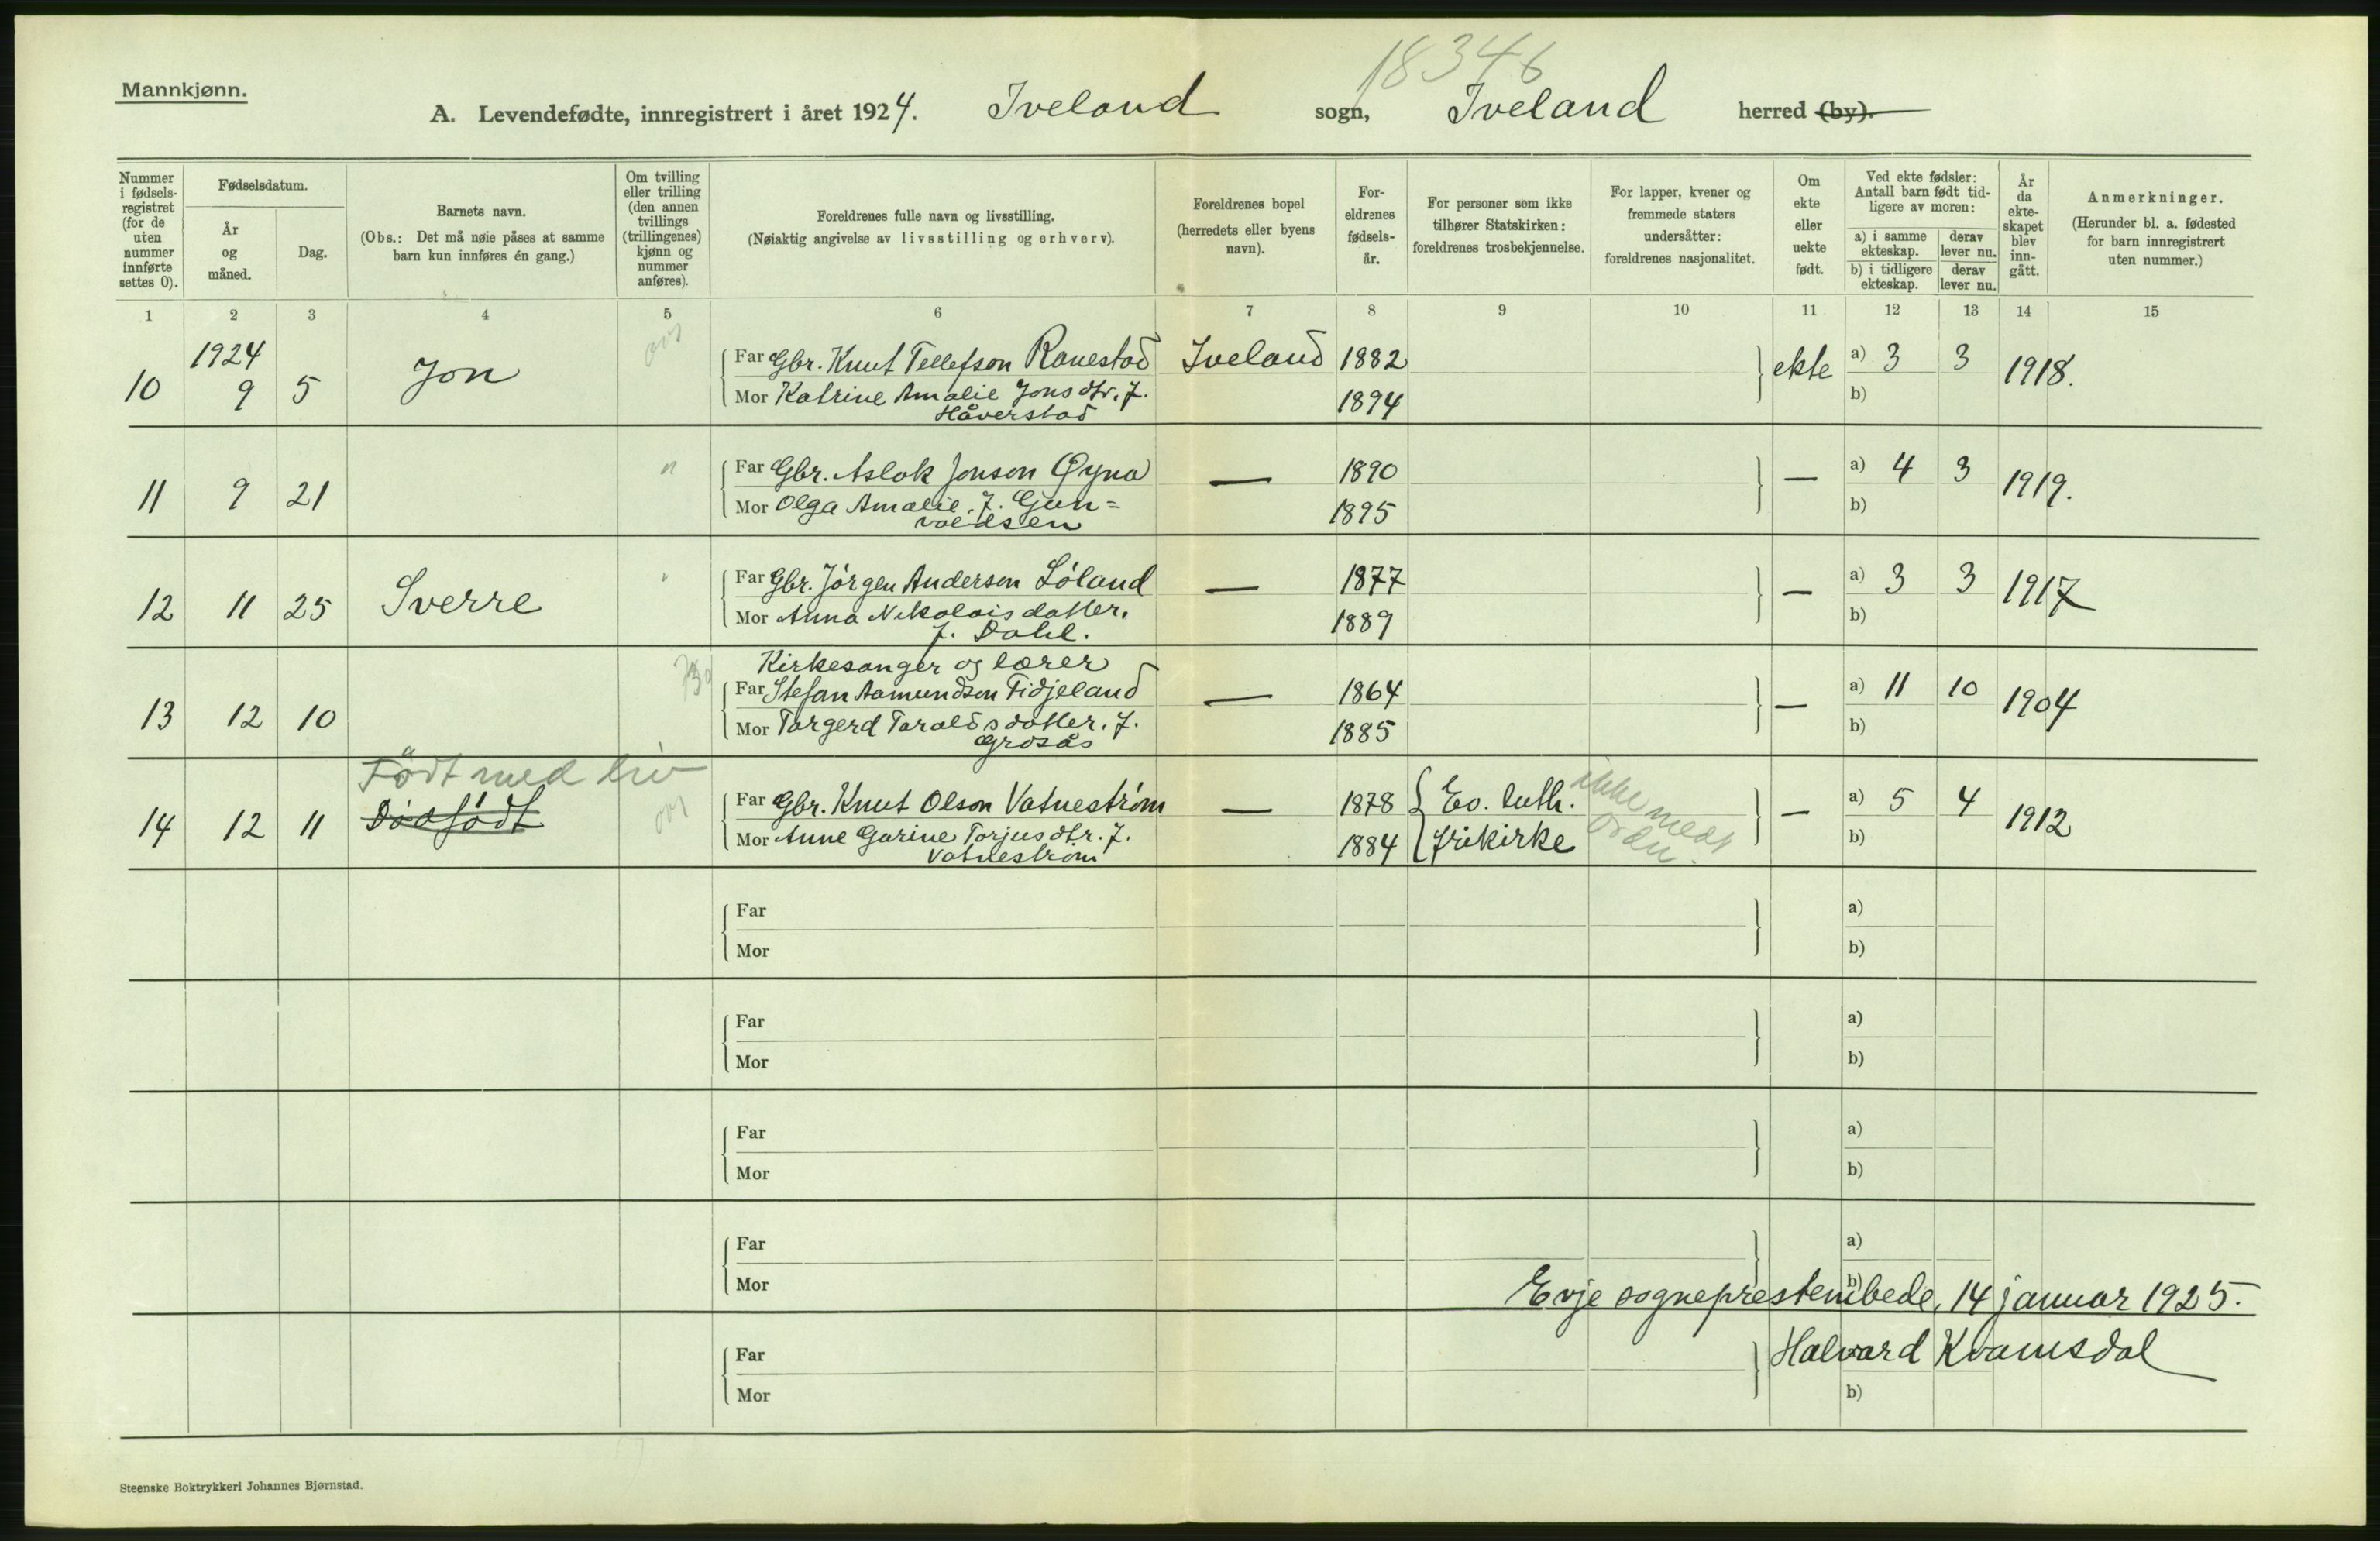 18346
Mannkjønn.
A. Levendefødte, innregistrert i året 1924. Iveland sogn, Iveland herred (by).
Nummer i fødsels-registret (for de uten nummer innførte settes 0).
Fødselsdatum.
År og måned.
Dag.
Barnets navn.
(Obs.: Det må nøie påses at samme barn kun innføres én gang.)
Om tvilling eller trilling (den annen tvillings (trillingenes) kjønn og nummer anføres).
Foreldrenes fulle navn og livsstilling.
(Nøiaktig angivelse av livsstilling og erhverv).
Foreldrenes bopel (herredets eller byens navn).
For-eldrenes fødsels-år.
For personer som ikke tilhører Statskirken: foreldrenes trosbekjennelse.
For lapper, kvener og fremmede staters undersåtter: foreldrenes nasjonalitet.
Om ekte eller uekte født.
Ved ekte fødsler: Antall barn født tid-ligere av moren:
a) i samme ekteskap.
derav lever nu.
b) i tidligere ekteskap.
derav lever nu.
År da ekte-skapet blev inn-gått.
Anmerkninger.
(Herunder bl. a. fødested for barn innregistrert uten nummer.)
1 2 3 4 5 6 7 8 9 10 11 12 13 14 15
1924
10 9 5 Jon Far Gbr. Knut Tellefson Ranestad Iveland 1882 ekte a) 3 3 1918.
Mor Katrine Amalie Jonsdtr. f. 1894 b)
Håverstad
11 9 21 Far Gbr. Aslak Jonson Øyna — 1890 — a) 4 3 1919.
Mor Olga Amalie f. Gun= 1895 b)
valdsen
12 11 25 Sverre Far Gbr. Jørgen Anderson Løland — 1877 — a) 3 3 1917
Mor Anna Nikolaisdatter. 1889 b)
f. Dahl.
Kirkesanger og lærer
13 12 10 Far Stefan Aamundson Fidjeland — 1864 — a) 11 10 1904
Mor Targerd Taraldsdatter. f. 1885 b)
Grosås
Født med liv
14 12 11 Dødfødt Far Gbr. Knut Olson Vatnestrøm — 1878 Ev. luth. ikke medr — a) 5 4 1912
Mor Anne Gurine Torjusdtr. f. 1884 frikirke b)
Vatnestrøm
Far a)
Mor b)
Far a)
Mor b)
Far a)
Mor b)
Far a)
Mor b)
Evje sogneprestembede, 14 januar 1925.
Halvard Kvamsdal
Far
Mor b)
Steenske Boktrykkeri Johannes Bjørnstad.